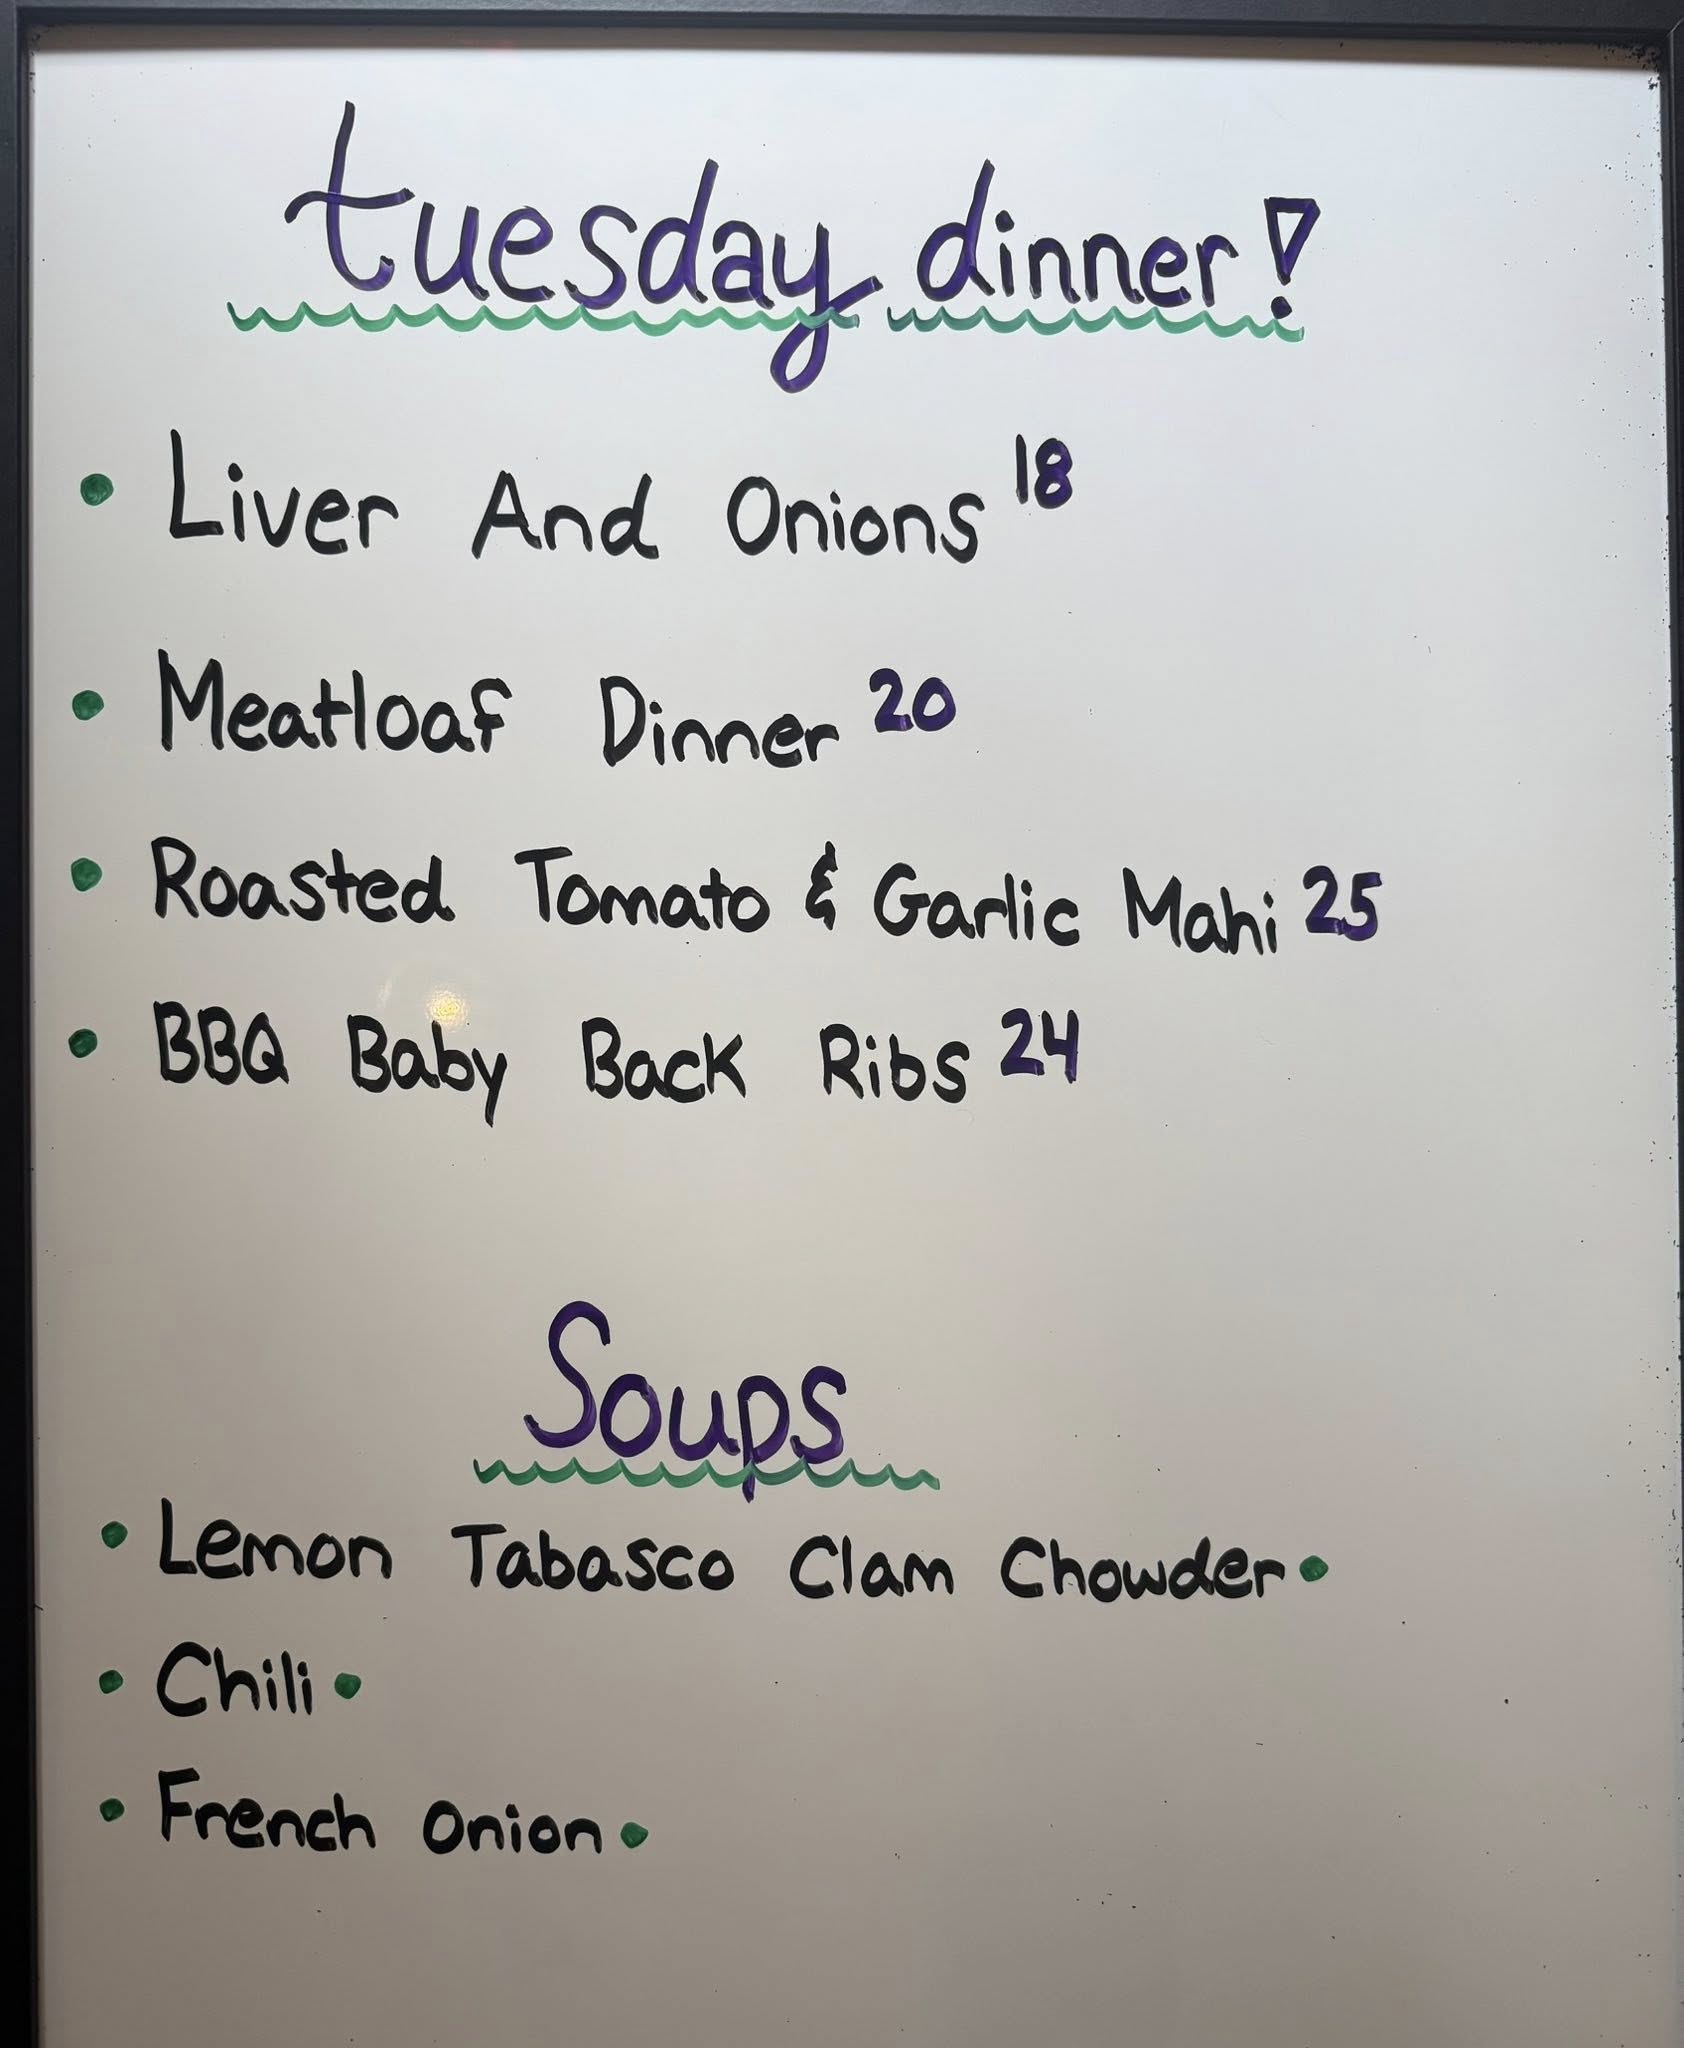 tuesday dinner!
• Liver And Onions 18
• Meatloaf Dinner 20
• Roasted Tomato & Garlic Mahi 25
• BBQ Baby Back Ribs 24
Soups
• Lemon Tabasco Clam Chowder •
• Chili •
• French Onion •